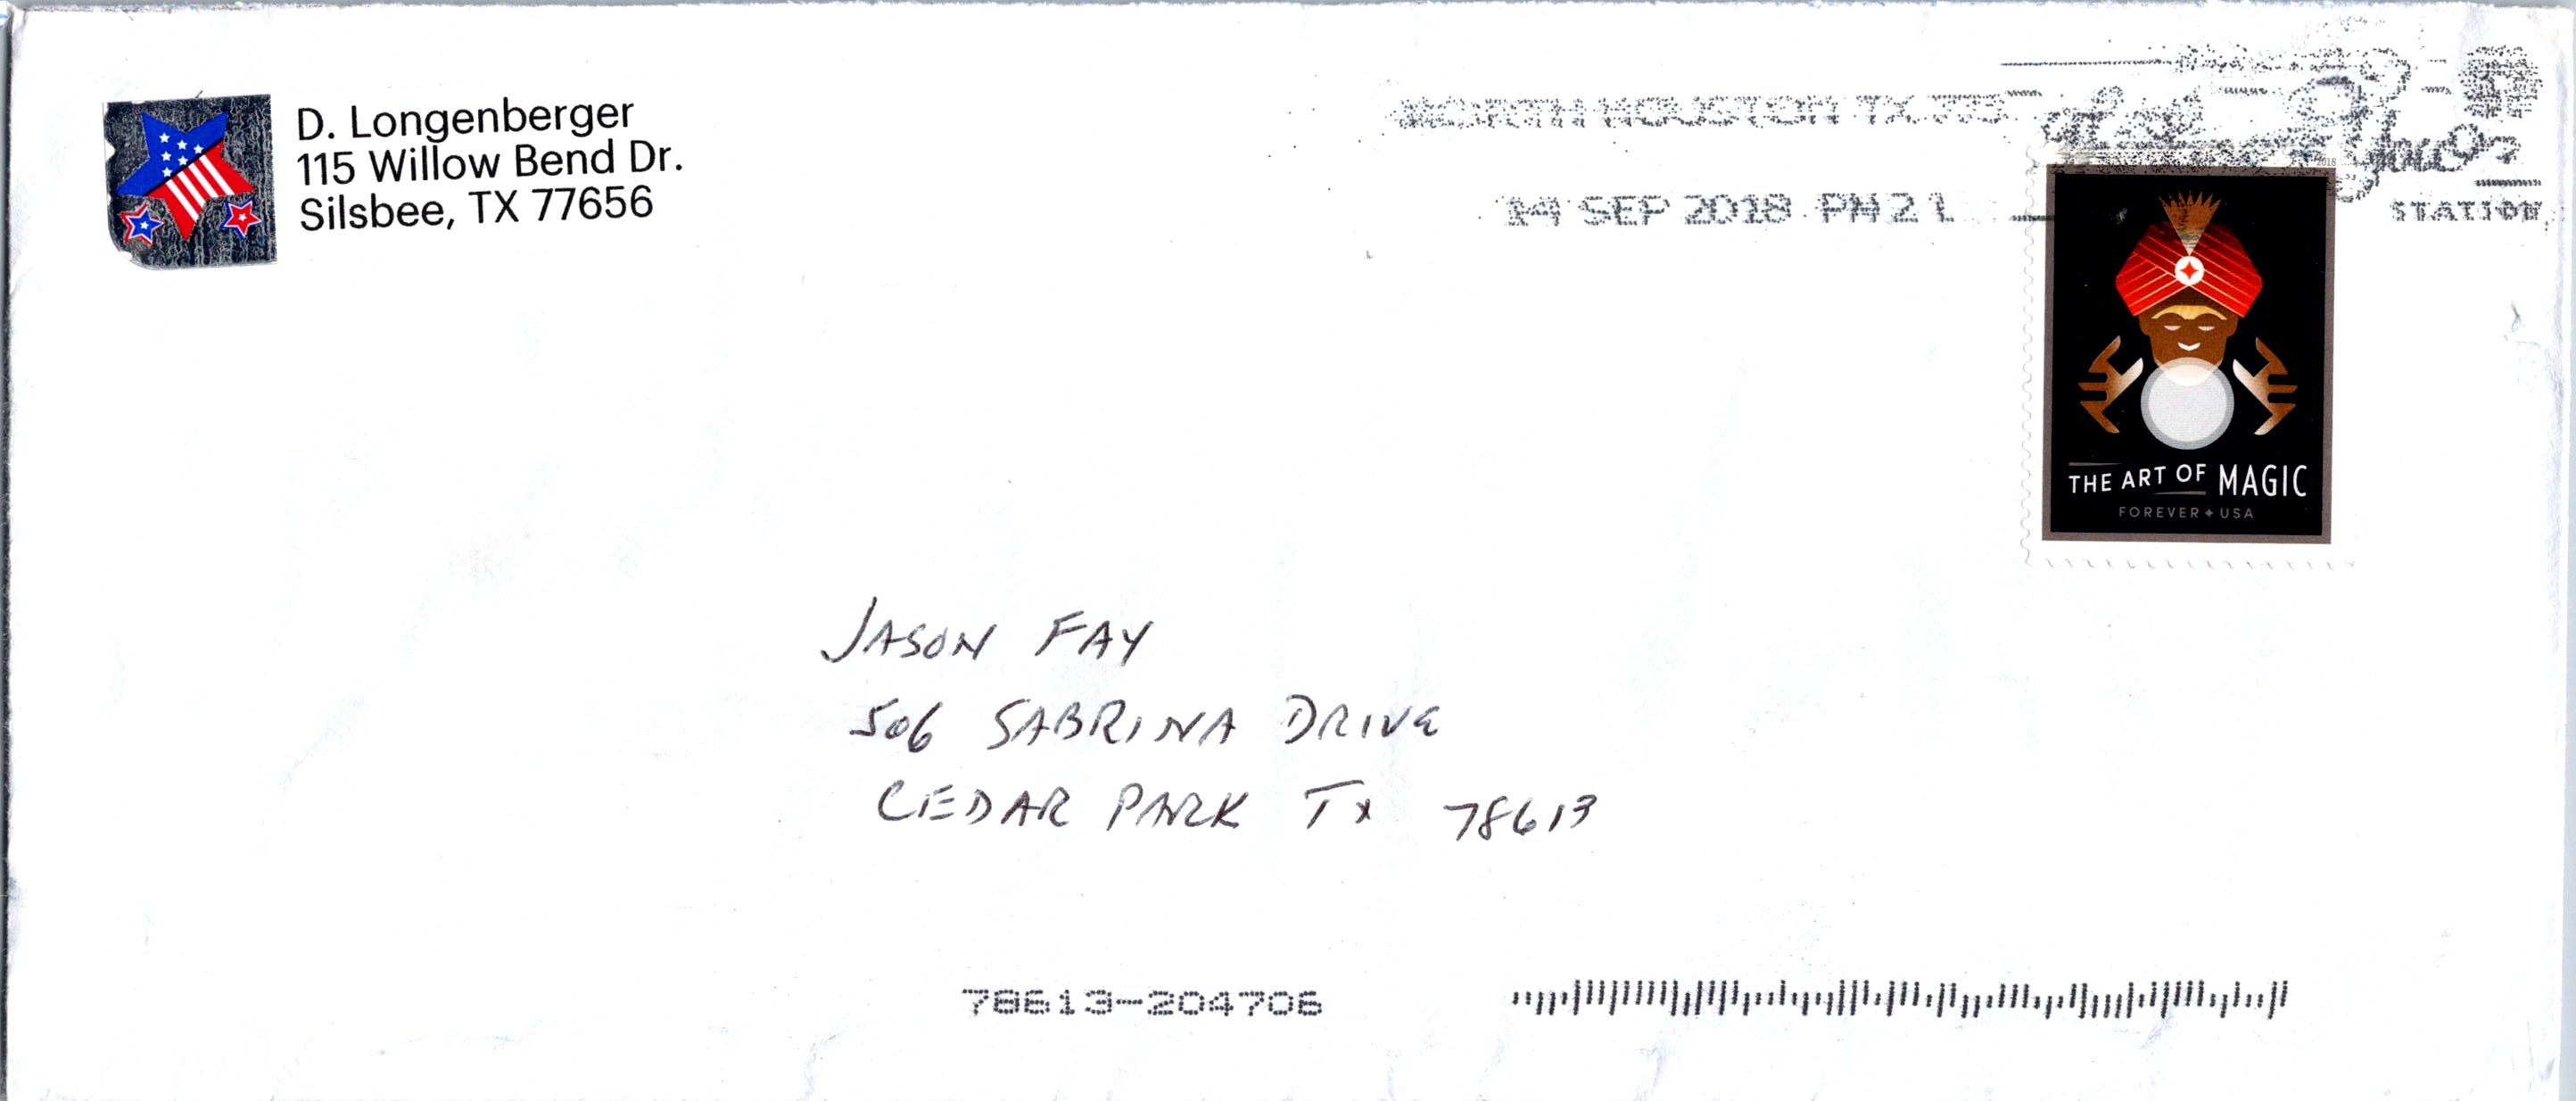 D. Longenberger
115 Willow Bend Dr.
Silsbee, TX 77656
NORTH HOUSTON TX 773
14 SEP 2018 PM 2 L
STATION
2018
THE ART OF MAGIC
FOREVER USA
JASON FAY
506 SABRINA DRIVE
CEDAR PARK TX 78613
78613-204706